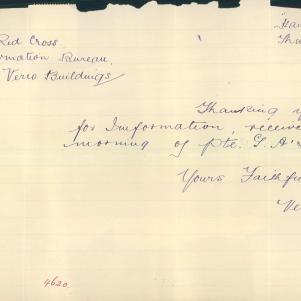 Red Cross
rmation Bureau.
Verco Buildings
Thanking y
for Information, receive
morning of Pte. G. A.
Yours Faithfu
Ve
4620.